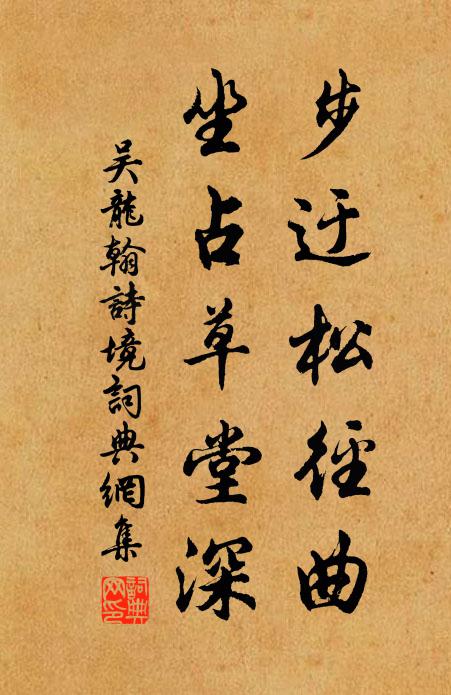 步迂松徑曲
坐占草堂深
吴龍翰詩境詞典網集
詞典
网印